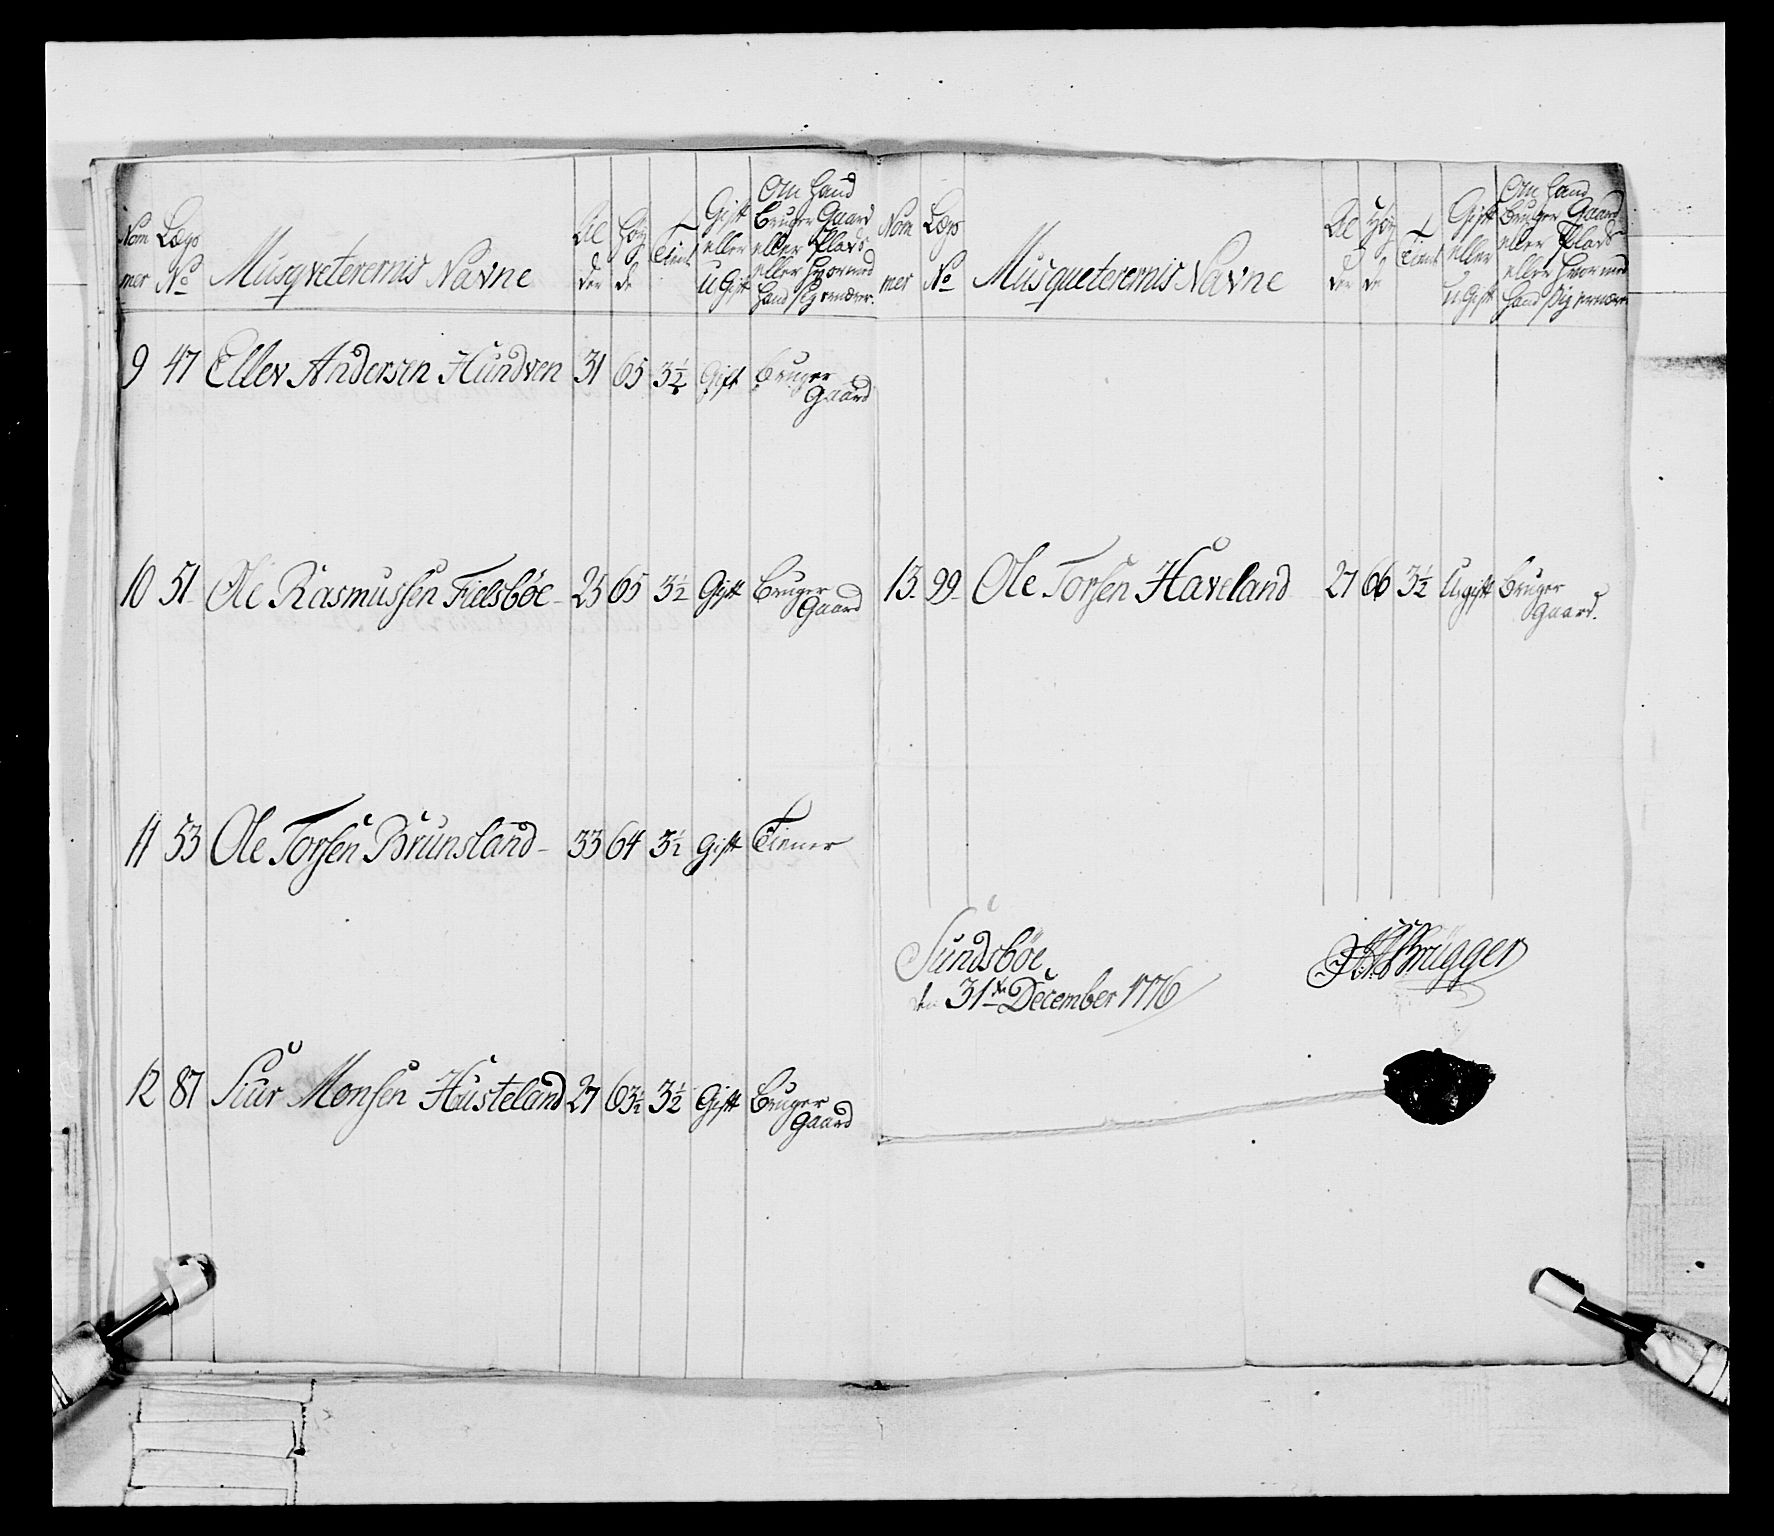 Nom mer | Lægs No | Musqveterernis Navne | Al der | Høy de | Tient | Gift eller UGift | Om Hand Bruger Gaard eller Plads eller Hvormed Hand sig ernærer.
9 47 Ellev Andersen Hundven 31 65 3½ Gift Bruger Gaard
10 51 Ole Rasmussen Fielsbøe 25 65 3½ Gift Bruger Gaard
11 53 Ole Torsen Brunsland 33 64 3½ Gift Tiener
12 87 Siur Monsen Husteland 27 63½ 3½ Gift Bruger Gaard
Nom mer | Lægs No | Musqueterernis Navne | Al der | Høy de | Tient | Gift eller UGift | Om Hand Bruger Gaard eller Plads eller Hvormed Hand sig ernærer
13. 99 Ole Torsen Haveland 27 66 3½ Ugift Bruger Gaard.
Sundsbøe
den 31te December 1776
Brügger